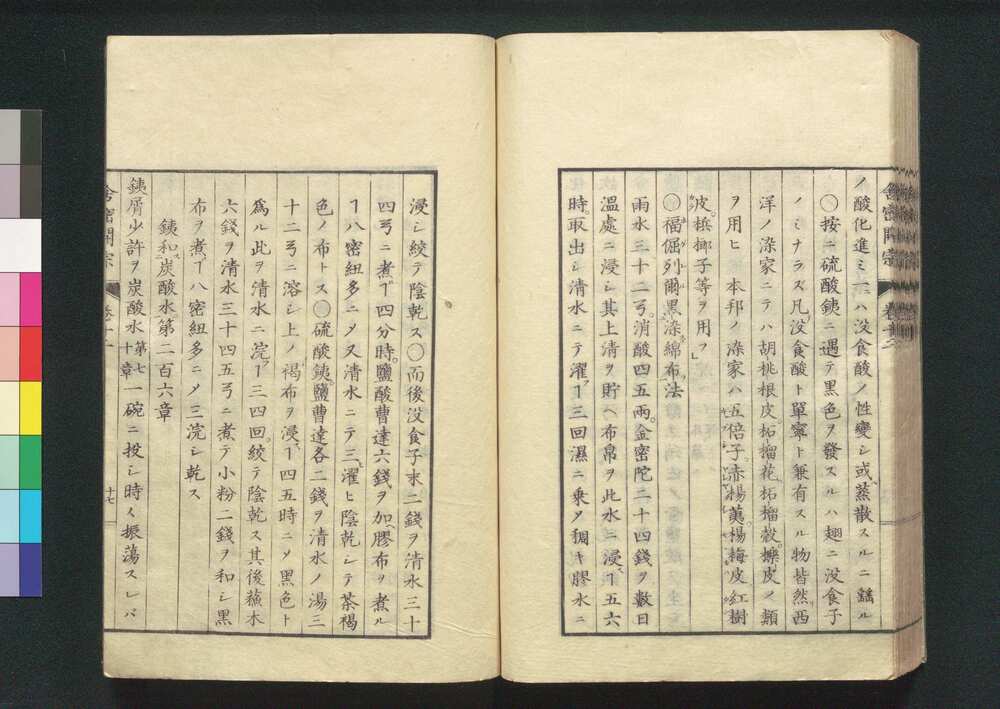 ノ酸化進ミ或ハ没食酸ノ性變シ或蒸散スルニ繇ル
○按ニ硫酸銕ニ遇テ黒色ヲ發スルハ翅ニ没食子
ノミナラズ凡没食酸ト單寧ト兼有スル物皆然西
洋ノ染家ニテハ胡桃根皮柘榴花柘榴殼檪皮ノ類
ヲ用ヒ 本邦ノ染家ハ五倍子赤楊菓楊梅皮紅樹
皮梹榔子等ヲ用フ
○福倔列爾黒染綿布法
雨水三十二弖消酸四五兩金密陀二十四錢ヲ數日
温處ニ浸シ其上清ヲ貯ヘ布帛ヲ此水ニ浸ヿ五六
時取出シ清水ニテ濯ヿ三回濕ニ乗メ稠キ膠水ニ
舎密開宗 卷十二
浸シ絞テ陰乾ス○而後没食子末二錢ヲ清水三十
四弖ニ煮ヿ四分時鹽酸曹達六錢ヲ加膠布ヲ煮ル
ヿ八密紐多ニメ又清水ニテ三濯ヒ陰乾シテ茶褐
色ノ布トス○硫酸銕鹽曹達各二錢ヲ清水ノ湯三
十二弖ニ溶シ上ノ褐布ヲ浸ヿ四五時ニメ黒色ト
爲ル此ヲ清水ニ浣ヿ三四回絞テ陰乾ス其後蘓木
六錢ヲ清水三十四五弖ニ煮テ小粉二錢ヲ和シ黒
布ヲ煮ヿ八密紐多ニメ三浣シ乾ス
銕和炭酸水第二百六章
銕屑少許ヲ炭酸水第七十章一碗ニ投シ時々振蕩スレバ
舎密開宗 卷十二 十七